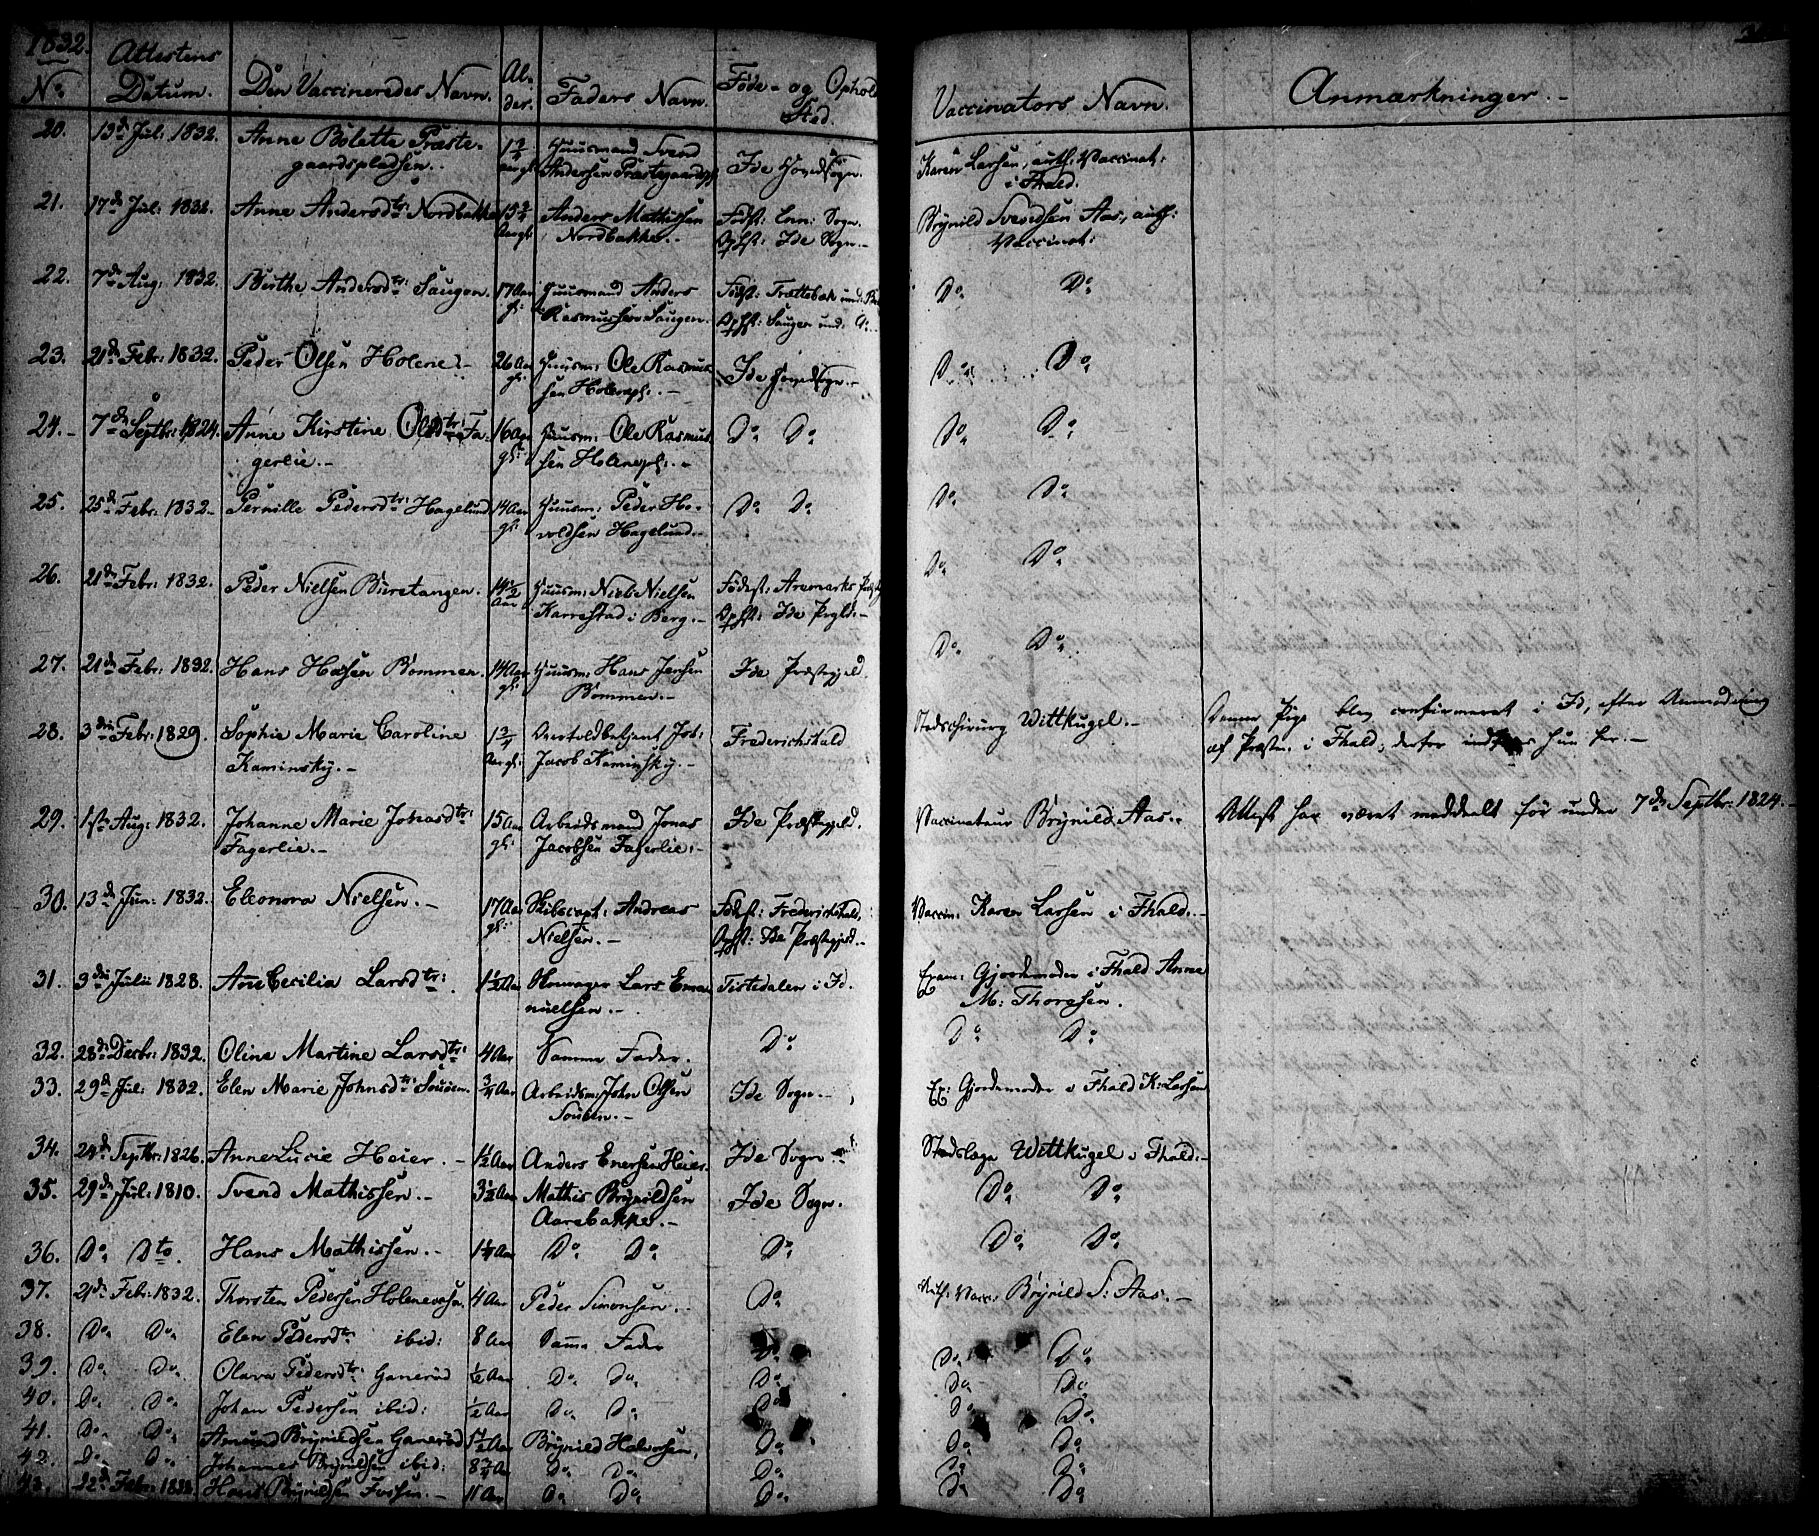 1832.
No. Attestens Datum. Den Vaccineredes Navn. Alder. Faders Navn. Føde- og Ophold Sted. Vaccinators Navn. Anmærkninger.-
20. 13de Jul: 1832. Anne Bolette Præste- 1 3/4 Huusmand Svend Ide Hovedsogn. Karen Larsen, auth: Vaccinat:
gaardspladsen.- aargl. Andersen Præstegaardspl i Fhald.
21. 17de Jul: 1832. Anne Andersdtr: Nordbakke 15 3/4 Anders Mathissen Fødst: Enn: Sogn. Brynild Svendsen Aas, auth:
Aargl. Nordbakke.- Opst: Ide Sogn.- Vaccinat:
22. 7de Aug: 1832. Birthe Andersdtr: Saugen. 17 Aar Huusmand Anders Fødst: Do. Do.
gl: Rasmussen Saugen. Opst: Saugen und:
23. 21de Febr: 1832. Peder Olsen Holene.- 26 Aar Huusm: Ole Rasmus- Ide Hovedsogn.- Do. Do.
gl: sen Holenepl:.-
24.- 7de Septbr: 1824. Anne Kirstine Olsdtr: Fa- 16 Aar Huusm: Ole Rasmus- Do. Do. Do. Do.
gerlie.- gl: sen Holenepl:.-
25. 25de Febr: 1832.- Pernille Pedersdtr: Hagelund 14 Aar Huusm: Peder Ho- Do. Do. Do. Do.
gl: voldsen Hagelund.-
26. 21de Febr: 1832. Peder Nielsen Buretangen. 14 1/2 Huusm: Niels Nielsen Fødest: Aremarks Do. Do.
Aar Karrestad i Berg.- Opst: Ide Prgld.-
27. 21de Febr: 1832. Hans Hansen Bommen. 14 Aar Huusm: Hans Jensen Ide Præstegjeld. Do. Do.
gl: Bommen.-
28. 3die Febr: 1829. Sophie Marie Caroline 1 3/4 Overtoldbetjent Joh: Frederichshald Stadschirurg Wittkugel.- Denne Pige blev confirmeret i Id, efter Anmodning
Kaminsky.- Aargl: Jacob Kaminsky.- af Præsten i Fhald; derfor indføres hun her.-
29. 1ste Aug: 1832. Johanne Marie Jonasdtr: 15 Aar Arbeidsmand Jonas Ide Præstegjeld. Vaccinateur Brynild Aas.- Attest har været meddeelt før under 7de Septbr: 1824.-
Fagerlie.- gl: Jacobsen Fagerlie.-
30. 13de Jun: 1832. Eleonora Nielsen.- 17 Aar Skibscapt: Andreas Fødst: Frederichshald, Vaccin: Karen Larsen i Fhald.-
gl: Nielsen.- Opst: Ide Præstegjeld.-
31. 9de Julii 1828. Ane Cecilia Larsdtr: 1 1/2 Aar Skomager Lars Ema- Tistedalen i Id. Exam: Gjordemoder i Fhald Anne
nuelsen.- M: Thoresen.
32. 28de Decbr: 1832. Oline Martine Larsdtr: 4 Aar Samme Fader. Do. Do. Do.
33. 29de Jul: 1832. Elen Marie Johnsdtr: Souøen. 3/4 Aar Arbeidsm: John Olsen Ide Sogn.- Ex: Gjordemoder i Fhald K: Larsen
Souøen.-
34. 24de Septbr: 1826. Anne Lucie Heier.- 1 1/2 Aar Anders Enersen Heier. Ide Sogn Stadslæge Wittkugel i Fhald.-
35. 29de Jul: 1810. Svend Mathissen.- 3 1/2 Aar Mathis Brynildsen Ide Sogn. Do. Do.
Aarebakke.-
36. Do. Dto. Hans Mathissen.- 1 1/4 Aar Do. Do. Do. Do. Do.
37. 21de Febr: 1832. Thorsten Pedersen Holenevasen 4 Aar Peder Simonsen.- Do. Auth: Vacc: Brynild S: Aas.-
38. Do. Do. Elen Pedersdtr: ibid: 8 Aar Samme Fader Do. Do. Do.
39. Do. Do. Olava Pedersdtr: Ganerød Aar Do. Do. Do. Do. Do.
40. Do. Do. Johan Pedersen ibid: 1/2 Aar Do. Do. Do. Do. Do.
41. Do. Do. Amund Brynildsen Ganerød Aar Brynild Halvorsen, Do. Do. Do.
42. Do. Do. Johannes Brynildsen ibid: 8 3/4 Aar Do. Do. Do. Do. Do.
43. 22de Febr: 1832 Hans Brynildsen 11 Aar Do. Do. Do. Do. Do.